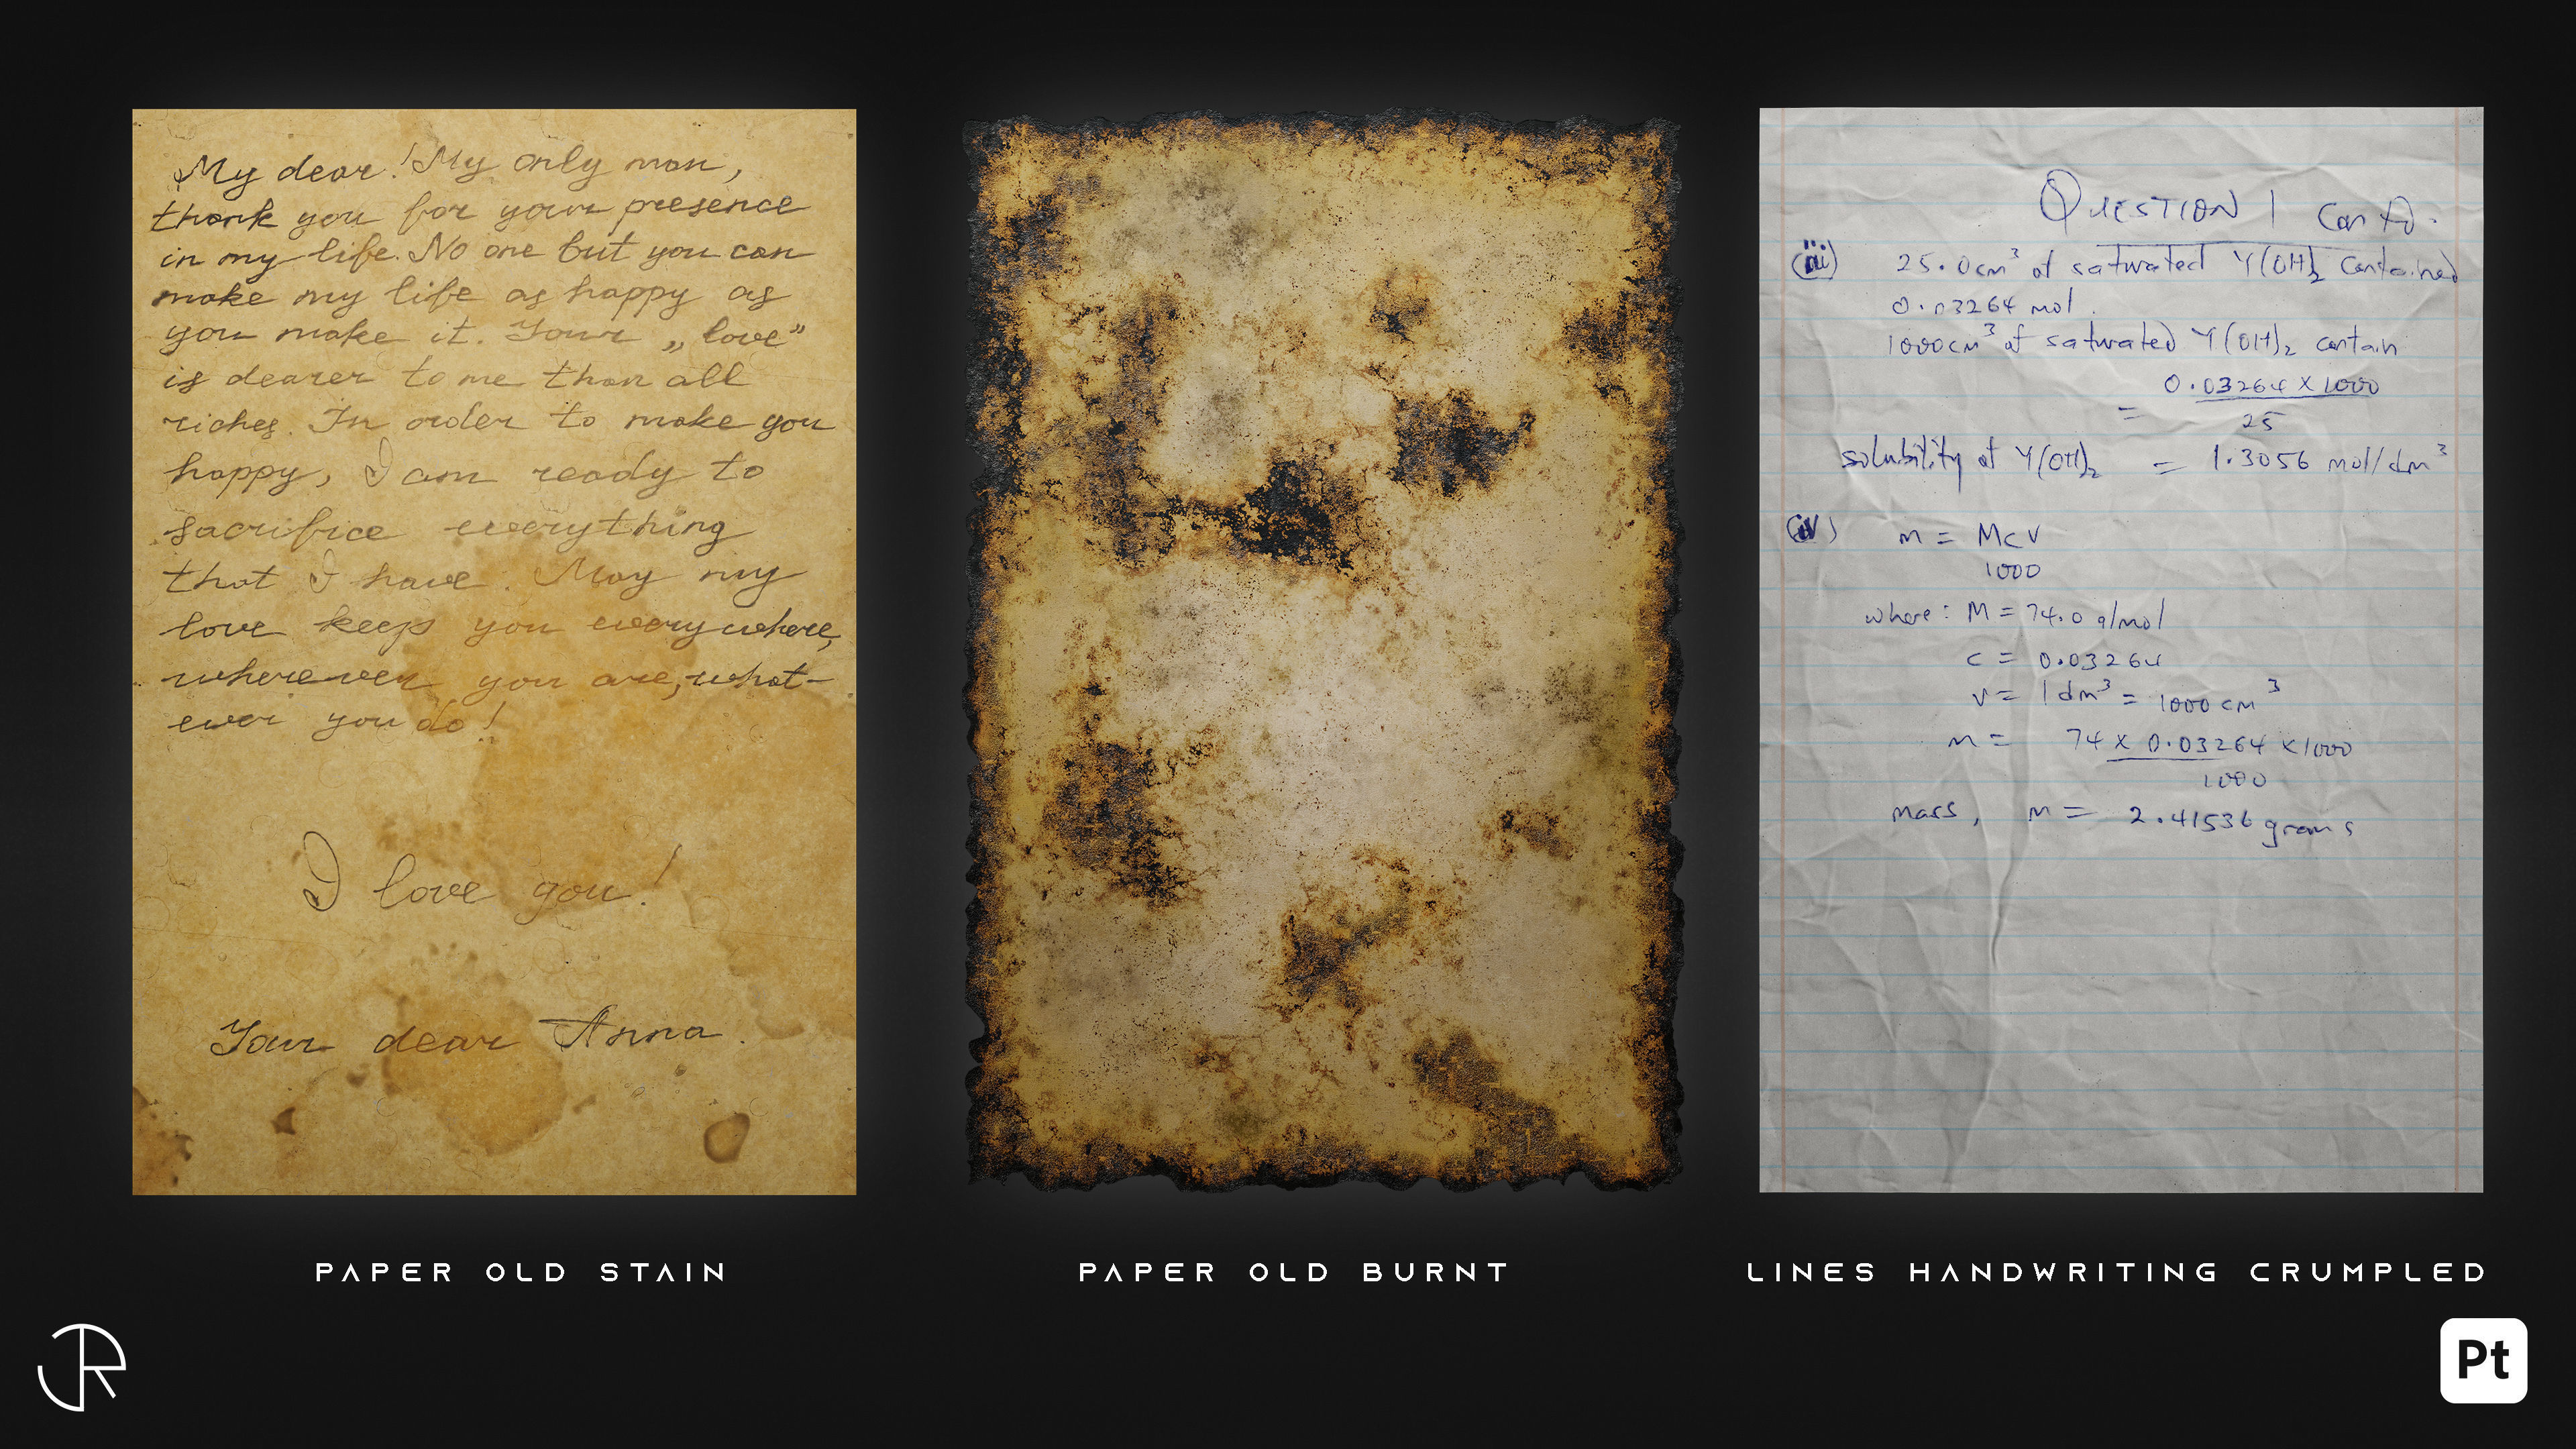 My dear! My only man,
thank you for your presence
in my life. No one but you can
make my life as happy as
you make it. Your „love”
is dearer to me than all
riches. In order to make you
happy, I am ready to
sacrifice everything
that I have. May my
love keep you everywhere,
wherever you are, what-
ever you do!
I love you!
Your dear Anna.
PAPER OLD STAIN
PAPER OLD BURNT
QUESTION 1 Contd.
(iii) 25.0cm³ of saturated Y(OH)₂ contained
0.03264 mol.
1000cm³ of saturated Y(OH)₂ contain
0.03264 x 1000
=
25
solubility of Y(OH)₂ = 1.3056 mol/dm³
(iv) m = McV
1000
where: M = 74.0 g/mol
c = 0.03264
v = 1dm³ = 1000 cm³
m = 74 x 0.03264 x 1000
1000
mass, m = 2.41536 grams
LINES HANDWRITING CRUMPLED
JR
Pt